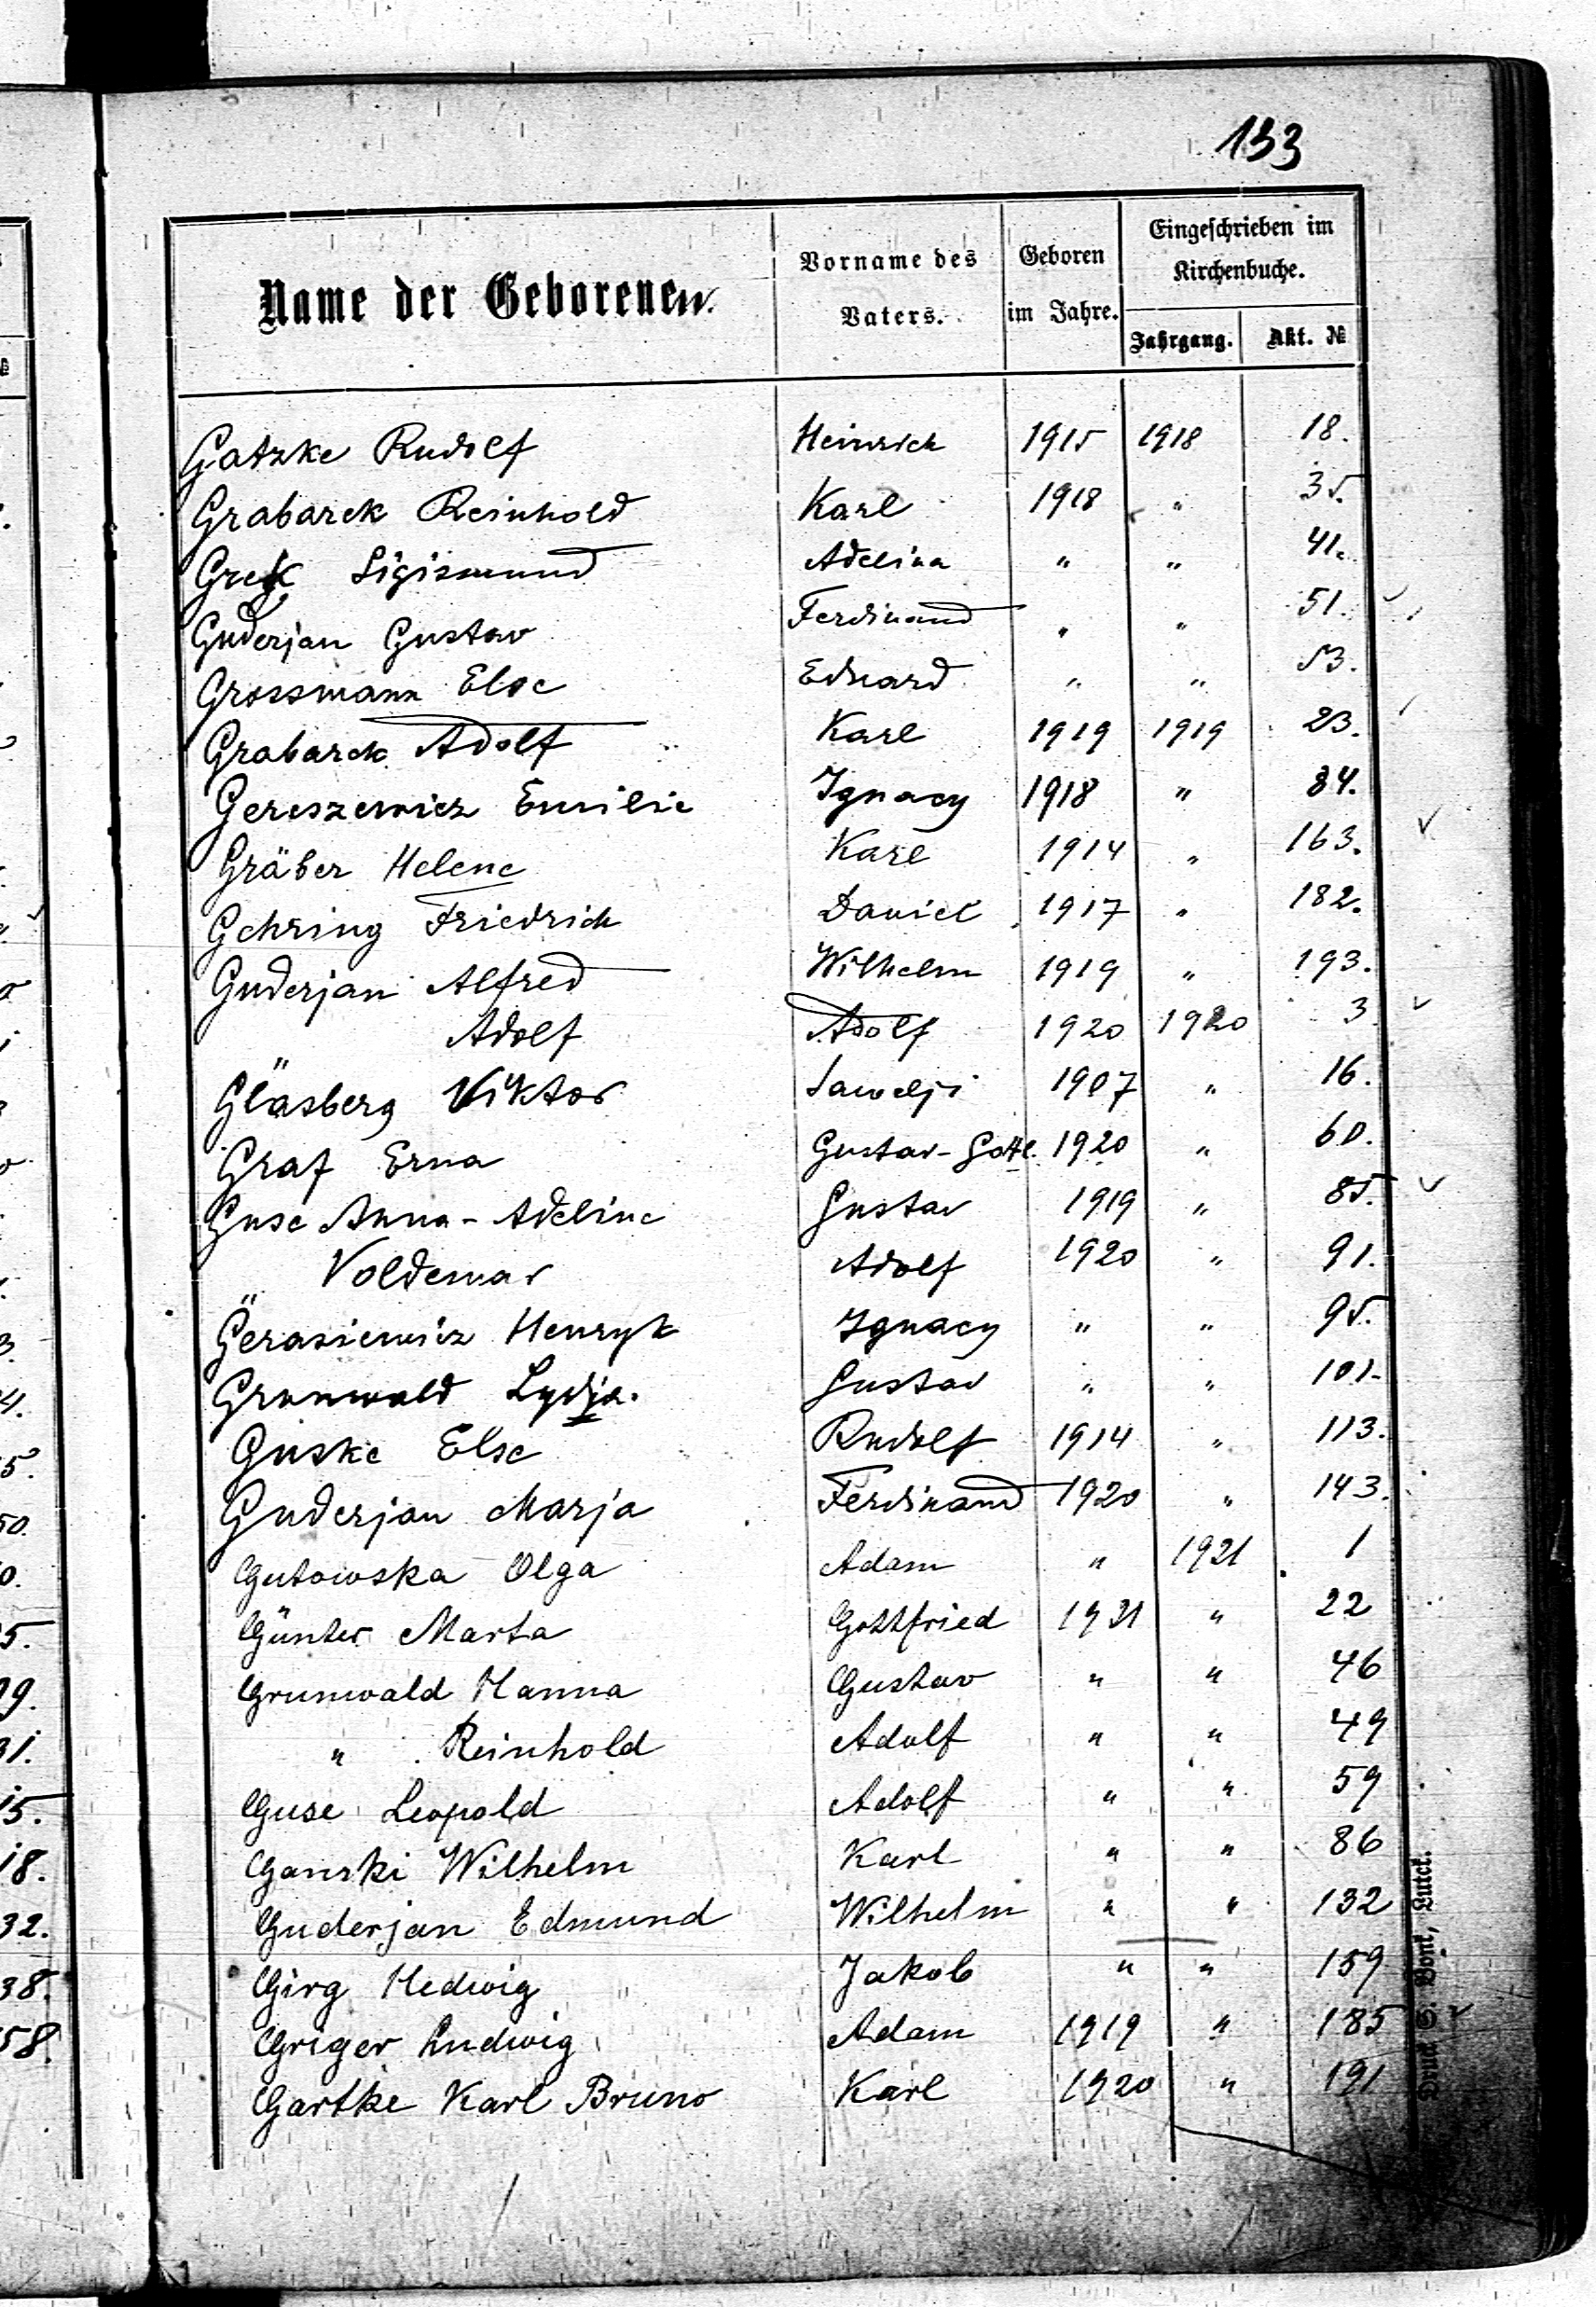 133
Name der Geborenen.
Vorname des Vaters.
Geboren im Jahre.
Eingeschrieben im Kirchenbuche.
Jahrgang. Akt. №
Gatzke Rudolf Heinrich 1915 1918 18.
Grabarek Reinhold Karl 1918 " 35.
Grek Sigismund Adelina " " 41.
Guderjan Gustav Ferdinand " " 51.
Grossmann Else Eduard " " 53.
Grabarek Adolf Karl 1919 1919 23.
Gereszewicz Emilie Ignacy 1918 " 84.
Gräber Helene Karl 1914 " 163.
Gehring Friedrich Daniel 1917 " 182.
Guderjan Alfred Wilhelm 1919 " 193.
" Adolf Adolf 1920 1920 3
Gläsberg Viktor Sawelji 1907 " 16.
Graf Erna Gustav-Gottl. 1920 " 60.
Guse Anna-Adeline Gustav 1919 " 85.
" Voldemar Adolf 1920 " 91.
Gerasiewicz Henryk Ignacy " " 95.
Grunwald Lydja. Gustav " " 101.
Guske Else Rudolf 1914 " 113.
Guderjan Marja Ferdinand 1920 " 143.
Gutowska Olga Adam " 1921 1
Günter Marta Gottfried 1921 " 22
Grunwald Hanna Gustav " " 46
" Reinhold Adolf " " 49
Guse Leopold Adolf " " 59
Ganski Wilhelm Karl " " 86
Guderjan Edmund Wilhelm " " 132
Girg Hedwig Jakob " " 159
Griger Ludwig Adam 1919 " 185
Gartke Karl Bruno Karl 1920 " 191